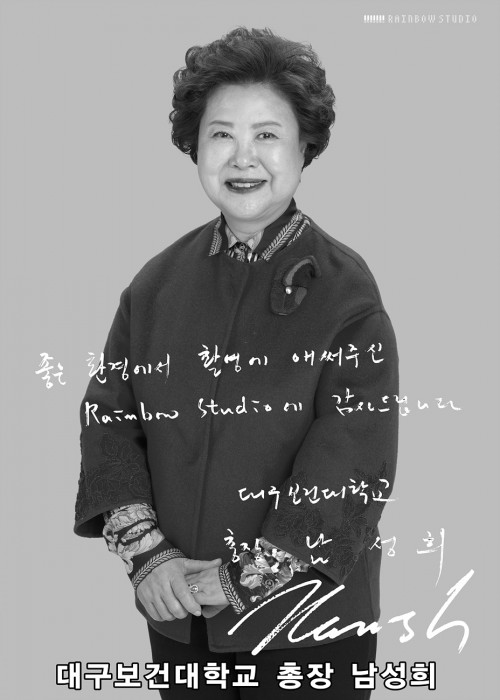 RAINBOW STUDIO
좋은 환경에서 촬영에 애써주신
Rainbow Studio에 감사드립니다
대구보건대학교
총장 남성희
대구보건대학교 총장 남성희